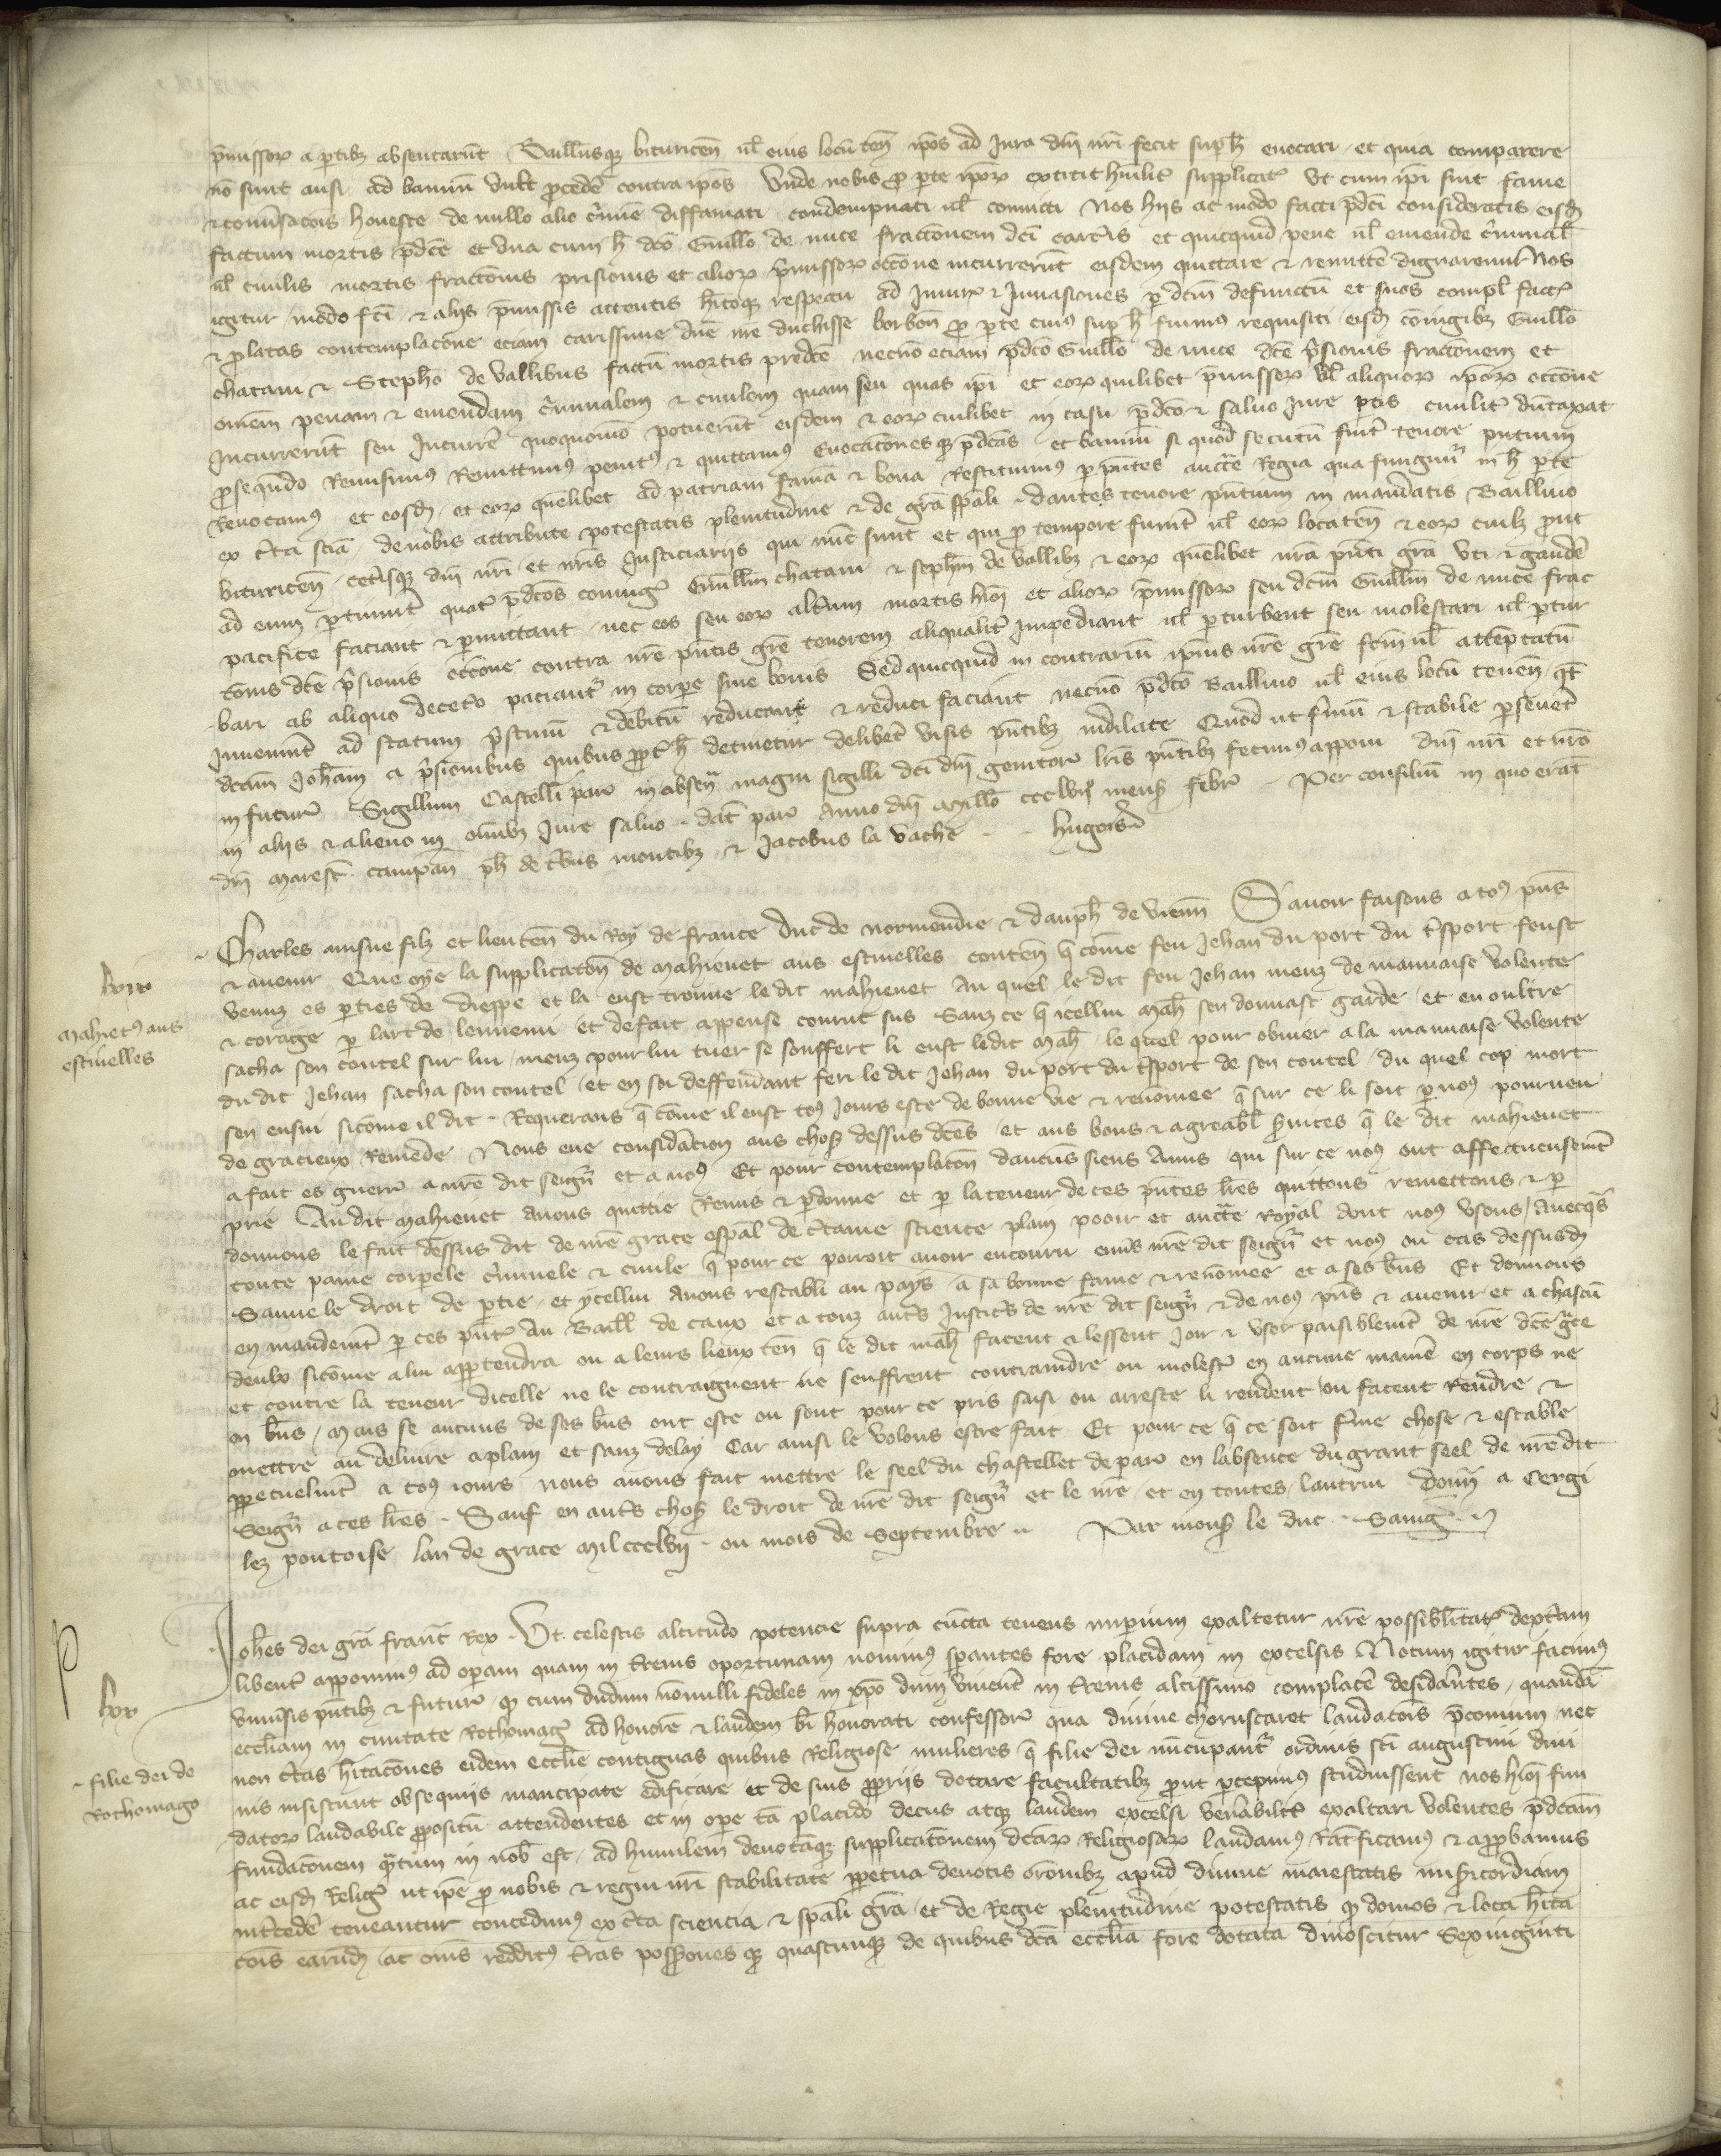 p̃missoꝝ a ꝑtibꝫ absentarũt Baillivusqꝫ bituriceñ ul̃ eius locũ teñ ip̃os ad Jura dñi nr̃i fecit suꝑ h̃ euocari et quia comparere
nõ sunt ausi ad bannũ vult ꝓcedẽ contra ip̃os Vnde nobis ꝓ ꝑte ip̃oꝝ extitit hũilit̃ supplicat̃ vt cum ip̃i sint fame
⁊ conũsacõis honeste de nullo alio c̃mine diffamati condempnati ul̃ conuicti Nos hijs ac modo facti p̃dc̃i consideratis eisdꝫ
factum mortis p̃dc̃e et vna cum h̃ dc̃o Guillo de nuce fractionem dc̃i carc̃is et quicquid pene ul̃ emende c̃iminal̃
ul̃ ciuilis mortis fractionis prisionis et alioꝝ p̃missoꝝ occõne incurrerũt eisdem quittare ⁊ remittẽ dignaremur Nos
igitur modo fc̃i ⁊ alijs p̃missis attentis h̃itoqꝫ respectu ad Iniur̃ ⁊ Inuasiones ꝑ dc̃m defunctũ et suos compl̃ fact̃
⁊ ꝑlatas contemplacõne eciam carissime dñe me duchisse borboñ ꝓ ꝑte cuiꝰ suꝑ h̃ fuimus requisiti eisdꝫ cõiugibꝫ Guillo
chatart ⁊ Stepho de Vallibus factũ mortis predc̃e necnõ eciam p̃dc̃o Guillo de nuce dc̃e p̃sionis fractionem et
om̃em penam ⁊ emendam c̃iminalem ⁊ ciuilem quam seu quas ip̃i et eoꝝ quilibet p̃missoꝝ ul̃ aliquoꝝ ip̃oꝝ occõne
Incurrerũt seu Incurrẽ quoquomõ potuerũt eisdem ⁊ eoꝝ cuilibet in casu p̃dc̃o ⁊ saluo iure ꝑtis ciuilit̃ dũtaxat
ꝓsequẽdo Remisimus Remittimꝰ penitꝰ ⁊ quittamus Euocacõnesqꝫ p̃dc̃as et bannũ si quod secutũ fuit̃ tenore p̃ntium
Reuocamꝰ et eosdꝫ et eoꝝ quẽlibet ad patriam famã ⁊ bona Restituimꝰ ꝑ p̃ntes auctẽ Regia qua fungim̃ in h̃ ꝑte
ex c̃ta sciã de nobis attribute potestatis plenitudine ⁊ de gr̃a sp̃ali dantes tenore p̃ntium in mandatis Baillivo
bituriceñ cet̃isqꝫ dñi nr̃i et nr̃is Justiciarijs qui nũc sunt et qui ꝓ tempore fuerĩt ul̃ eoꝝ locateñ ⁊ eoꝝ cuilꝫ ꝓut
ad eum ꝑtinuit̃ quat̃ p̃dc̃os coniug̃ Guillm̃ chatart ⁊ stephm̃ de Vallibꝫ ⁊ eoꝝ quẽlibet nr̃a p̃nti gr̃a vti ⁊ gaudẽ
pacifice faciant ⁊ ꝑmittant nec eos seu eoꝝ alt̃um mortis hm̃oi et alioꝝ p̃missoꝝ seu dc̃m Guillm̃ de nuce frac
cõnis dc̃e p̃sionis occõne contra nr̃e p̃ntis gr̃e tenorem aliqualit̃ impediant ul̃ ꝑturbent seu molestari ul̃ ꝑtur
bari ab aliquo decet̃o paciant̃ in corꝑe siue bonis Sed quicquid in contrariũ ip̃ius nr̃e gr̃e fc̃m ul̃ attẽptatũ
Inuenerĩt ad statum p̃stinũ ⁊ debitũ reducant ⁊ reduci faciant necnõ p̃dc̃o Baillivo ul̃ eius locũ teneñ qt̃
dc̃am Joham̃ a p̃sionibus quibus ꝓpt̃ h̃ detinetur delibet̃ visis p̃ntibꝫ indilate Quod ut firmũ ⁊ stabile ꝑseueret
in futur̃ Sigillum Castelleti par̃ in absenc̃ magni sigilli dc̃i dñi genitor̃ lr̃is p̃ntibꝫ fecimꝰ apponi dñi nr̃i et nr̃o
in alijs ⁊ alieno in om̃ibꝫ Jure saluo dat̃ par̃ Anno dñi Millo ccclviº mense febr̃ Per consiliũ in quo erat
dñi Marescꝫ campañ ph̃ de t̃bus montibꝫ ⁊ Jacobus la vache Hugois
Charles ainsne filz et lieuteñ du Roy de france Duc de normendie ⁊ dauph̃ de vieñn Sauoir faisons a toꝰ p̃ns
⁊ auenir Que oye la supplicatoñ de Mahieuet aus estinelles conteñ q̃ cõme feu Jehan du port du t̃sport feust
venuz es ꝑties de dieppe et la eust trouue le dit mahieuet Au quel le dit feu Jehan menz de mauuaise volente
⁊ corage ꝑ lart de lennemi et de fait appense courut sus Sanz ce q̃ icellui Mah̃ sen donnast garde et en oultre
sacha son coutel sur lui menz pour lui tuer se souffert li eust ledit Mah̃ le quel pour obuier a la mauuaise volente
du dit Jehan sacha son coutel et en soi deffendant feri le dit Jehan du port du t̃sport de son coutel du quel cop mort
sen ensui sicõme il dit Requerans q̃ cõme il eust toꝰ Jours este de bonne vie ⁊ renõmee q̃ sur ce li soit ꝑ noꝰ pourueu
de gracieux Remede Nous eue considãcion aus choses dessus dc̃es et aus bons ⁊ agreabl̃ s̃uices q̃ le dit mahieuet
a fait es guerr̃ a nr̃e dit seign̄r et a noꝰ Et pour contemplatoñ daucuns siens Amis qui sur ce noꝰ ont affectueusemẽt
prie Au dit Mahieuet Auons quittie Remis ⁊ ꝑdonne et ꝑ la teneur de ces p̃ntes lr̃es quittons remettons ⁊ ꝑ
donnons le fait dessus dit de nr̃e grace esp̃al de c̃taine science plain pooir et auctẽ Royal dont noꝰ vsons Auecqs̃
toute paine corporele c̃iminele ⁊ ciuile q̃ pour ce porroit auoir encouru enũs nr̃e dit seign̄r et noꝰ ou cas dessusdꝫ
Sauue le droit de ꝑtie et ycellui Auons restabli au pays a sa bonne fame ⁊ renõmee et a ses biẽs Et donnons
en mandemẽt ꝑ ces p̃nt̃ Au Baill̃ de caux et a touz aut̃s Justic̃s de nr̃e dit seign̄r ⁊ de noꝰ p̃ns ⁊ auenir et a chascũ
deulx sicõme a lui appartendra ou a leurs lieux teñ q̃ le dit Mah̃ facent ⁊ lessent Joir ⁊ vser paisiblemẽt de nr̃e dc̃e gr̃ce
et contre la teneur dicelle ne le contraignent ne seuffrent contraindre ou molest̃ en aucune manr̃e en corps ne
en biẽs Mais se aucuns de ses biẽs ont este ou sont pour ce pris saisi ou arreste li rendent ou facent Rendre ⁊
mettre au deliure a plain et sanz delay Car ainsi le volons estre fait Et pour ce q̃ ce soit f̃me chose ⁊ estable
ꝑpetuelmẽt a toꝰ iours nous auons fait mettre le seel du chastellet de par̃ en labsence du grant seel de nr̃e dit
Seign̄r a ces lr̃es Sauf en aut̃s choses le droit de nr̃e dit seign̄r et le nr̃e et en toutes lautrui Doñn a Cergi
lez pontoise lan de grace Mil ccclvij ou mois de Septembre Par mons̃ le duc Samg̃
lxix
Mahietꝰ aus
estinelles
Joh̃es dei gr̃a franc̃ Rex Vt celestis altitudo potencie supra cũcta tenens imperium exaltetur nr̃e possibilitat̃ dext̃am
libent̃ apponimꝰ ad oꝑam quam in t̃renis oportunam nouimꝰ sꝑantes fore placidam in excelsis Notum igitur facimꝰ
vniũsis p̃ntibꝫ ⁊ futur̃ qꝫ cum dudum nõnulli fideles in xp̃o dum viuerẽt in t̃renis altissimo complacẽ desid̃antes quandã
eccl̃iam in ciuitate Rothomag̃ ad honorẽ ⁊ laudem bt̃i honorati confessor̃ qua diuine choruscaret laudacõis p̃conium nec
non c̃tas h̃itacõnes eidem eccl̃ie contiguas quibus Religiose mulieres q̃ filie dei nũcupant̃ ordinis sc̃i augustini diui
nis insistunt obsequijs mancipate edificare et de suis ꝓprijs dotare facultatibꝫ ꝓut ꝑcepimꝰ studuissent nos hm̃oi fun
datoꝝ laudabile ꝓpositũ attendentes et in oꝑe tã placido decus atqꝫ laudem excelsi ven̄abilit̃ exaltari volentes p̃dc̃am
fundacõnem q̃tum in nob̃ est ad humilem deuotãqꝫ supplicacõnem dc̃aꝝ Religiosaꝝ laudamꝰ ratificamꝰ ⁊ approbamus
ac eisdꝫ Religꝫ ut ip̃e ꝓ nobis ⁊ regni nr̃i stabilitate ꝑpetua deuotis or̃onibꝫ apud diuine maiestatis mis̃icordiam
int̃cedẽ teneantur concedimꝰ ex c̃ta sciencia ⁊ sp̃ali gr̃a et de Regie plenitudine potestatis qꝫ domos ⁊ loca h̃ita
cõis earũdꝫ ac om̃s redditꝰ t̃ras possionesqꝫ quascunqꝫ de quibus dc̃a eccl̃ia fore dotata dinoscitur Sexuiginti
lxx
filie dei de
Rothomago